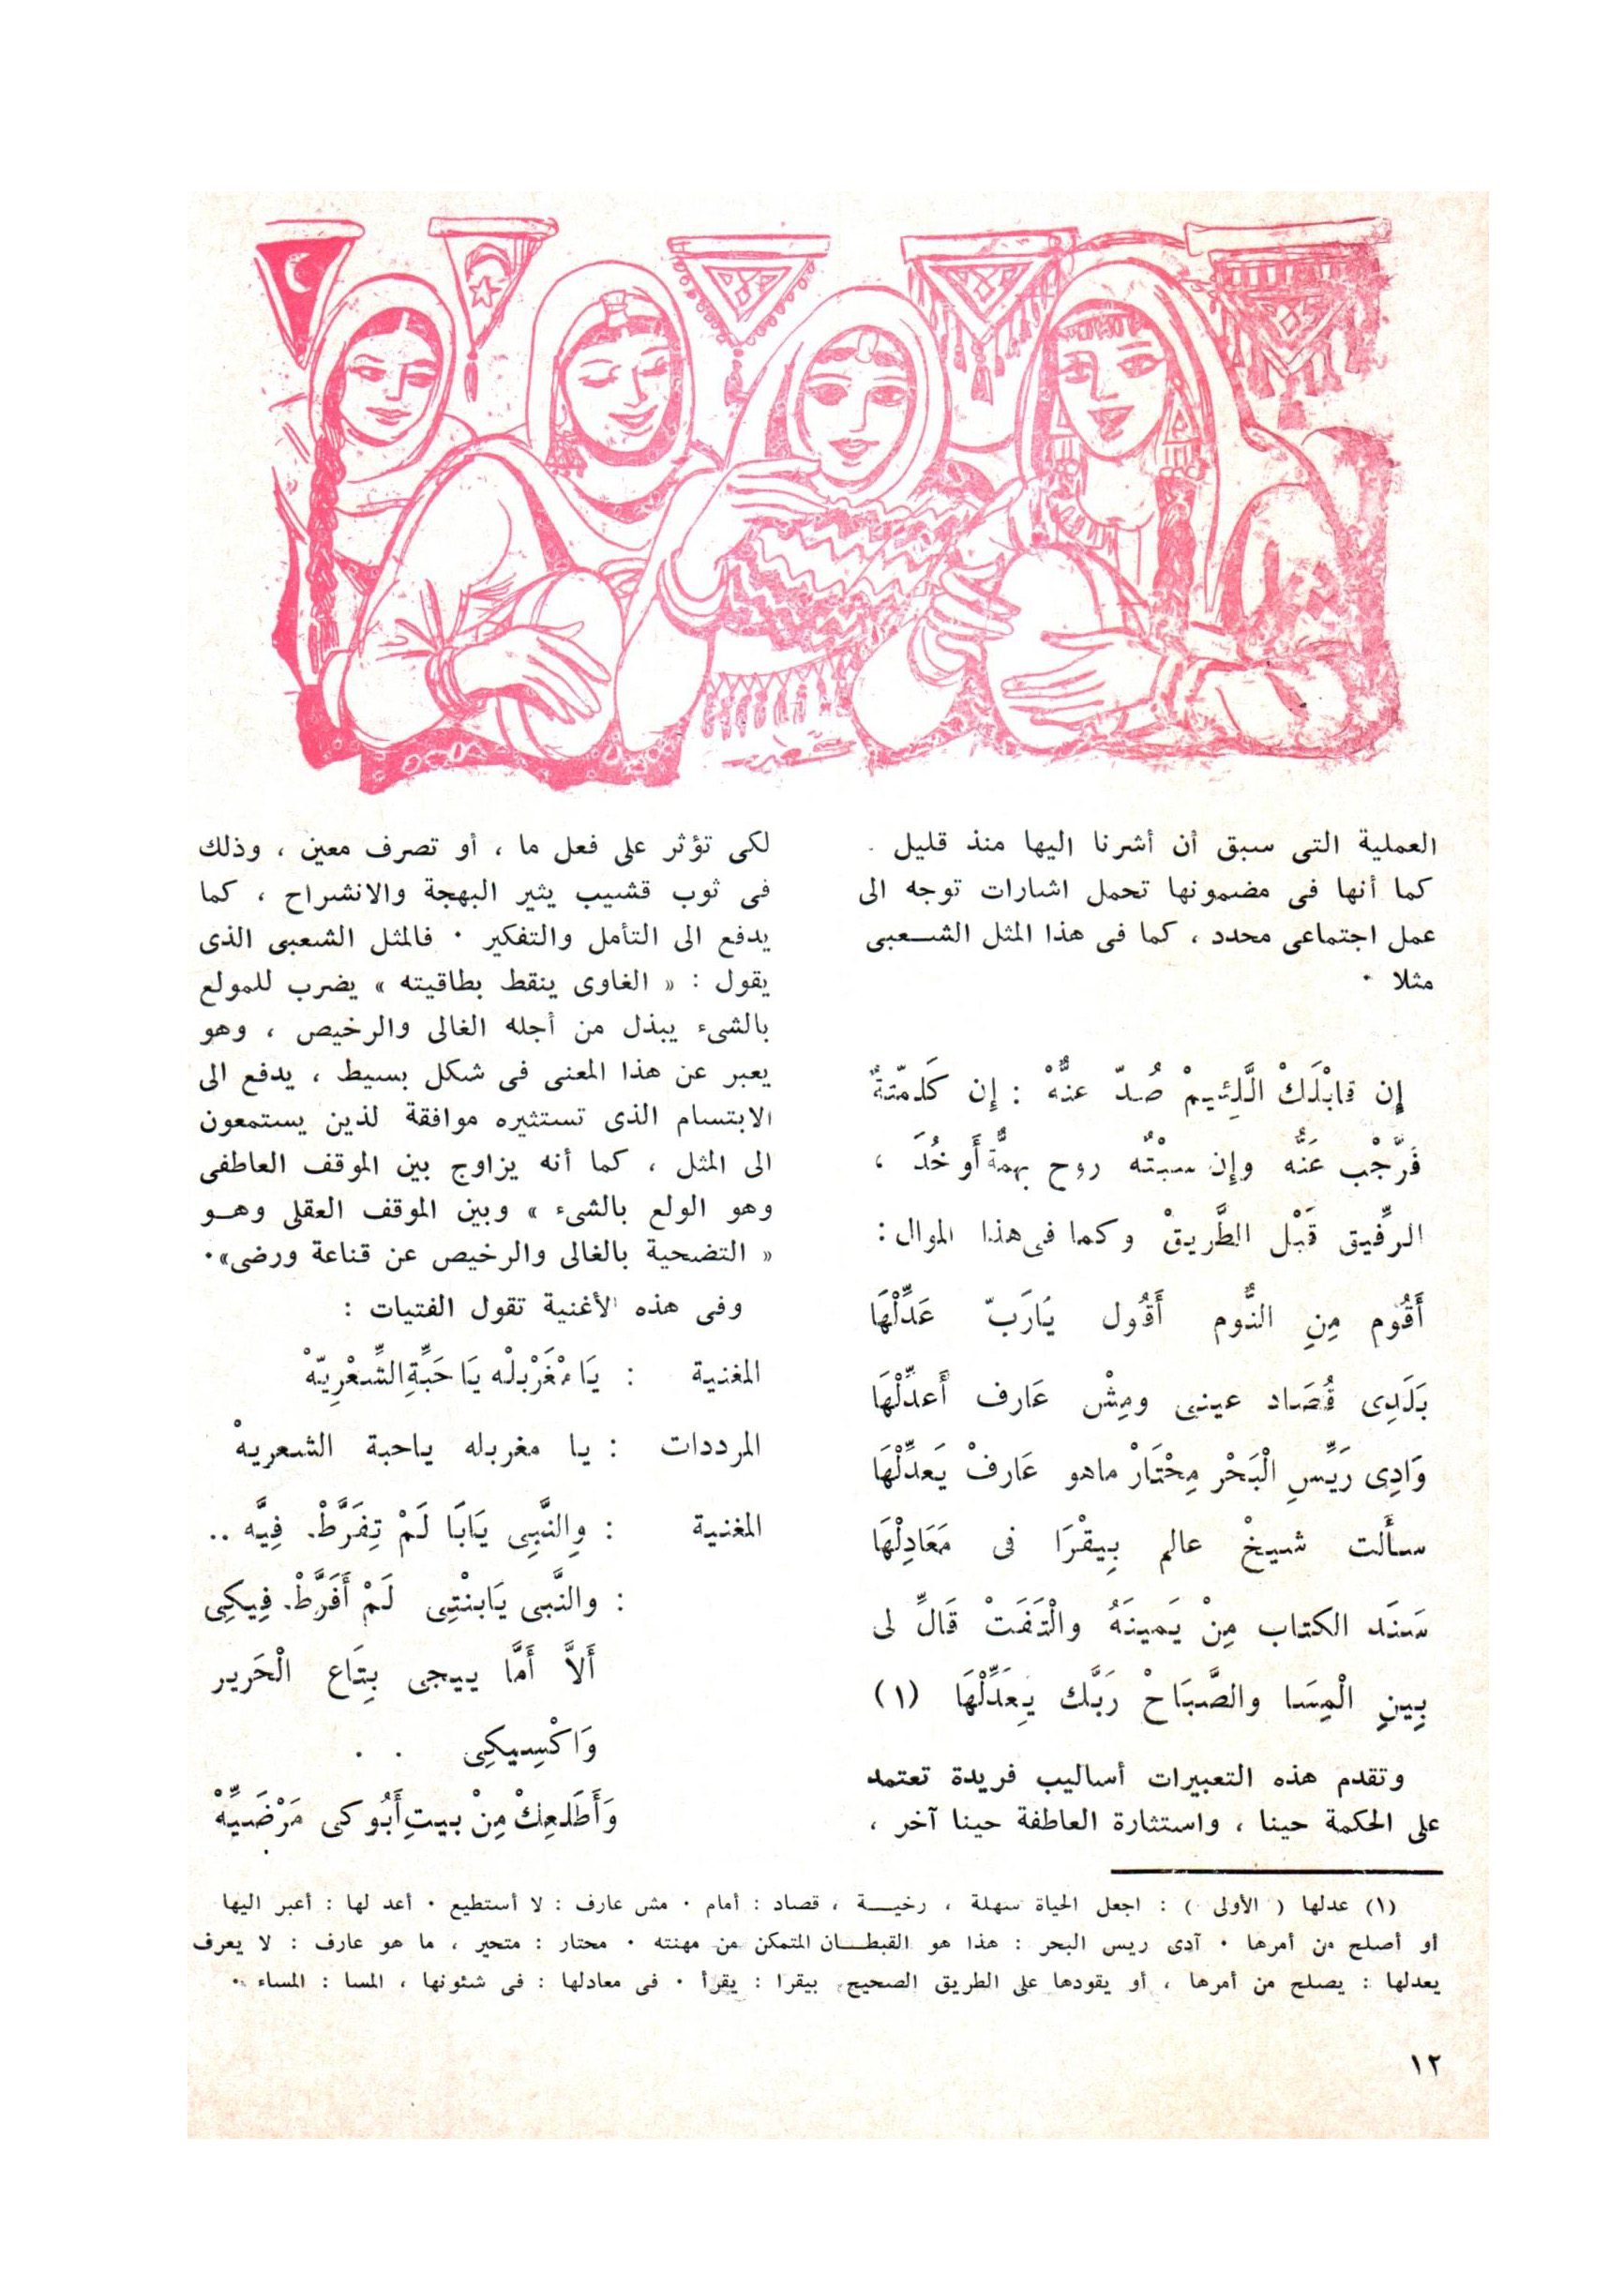 العملية التى سبق أن أشرنا اليها منذ قليل .
كما أنها فى مضمونها تحمل اشارات توجه الى
عمل اجتماعى محدد ، كما فى هذا المثل الشـعبى
مثلا ٠
إِن قابْلَكْ الَّلِئيمْ صُدّ عنُّهْ : إِن كَلمّتهٌ
فَرَّجْب عَنُّه وإِن سبْتُه روح بهمُّهٌ أَو خُدَ ،
الرِّفيق قَبْل الطَّريقْ وكما فى هذا الموال :
أَقُوم مِنِ النُّوم أَقُول يَارَبّ عَدِّلْهَا
بَلَدِى قُصَاد عينى ومِشْ عَارف أَعدِّلْهَا
وَادِى رَيِّسِ الْبَحْر مِحْتَارْ ماهو عَارفْ يَعدِّلْهَا
سأَلت شيخْ عالم بِيقْرَا فى مَعَادِلْهَا
سَنَد الكتاب مِنْ يَمينَهُ والْتَفَتْ قَالِّ لى
بِينِ الْمِسَا والصَّبَاحْ رَبَّك يِعَدِّلْهَا (١)
وتقدم هذه التعبيرات أساليب فريدة تعتمد
على الحكمة حينا ، واستثارة العاطفة حينا آخر ،
لكى تؤثر على فعل ما ، أو تصرف معين ، وذلك
فى ثوب قشيب يثير البهجة والانشراح ، كما
يدفع الى التأمل والتفكير ٠ فالمثل الشعبى الذى
يقول : « الغاوى ينقط بطاقيته » يضرب للمولع
بالشىء يبذل من أجله الغالى والرخيص ، وهو
يعبر عن هذا المعنى فى شكل بسيط ، يدفع الى
الابتسام الذى تستثيره موافقة لذين يستمعون
الى المثل ، كما أنه يزاوج بين الموقف العاطفى
وهو الولع بالشىء » وبين الموقف العقلى وهـو
« التضحية بالغالى والرخيص عن قناعة ورضى»٠
وفى هذه الأغنية تقول الفتيات :
المغنية : يَا مْغَرْبلْه يَا حَبِّةِ الشِّعْرِيّهْ
المرددات : يا مغربله ياحبة الشعريهْ
المغنية : وِالنَّبِى يَابَا لَمْ تِفَرَّطْ فِيَّه ..
: والنَّبى يَابنْتِى لَمْ أَفَرَّطْ فِيكِى
أَلاَّ أَمَّا ييجى بِتَاع الْحَرير
وَاكْسِيكِى . .
وَأَطَلعِكْ مِنْ بيتِ أَبُوكى مَرْضَيِّهْ
(١) عدلها ( الأولى ) : اجعل الحياة سهلة ، رخيـة ، قصاد : أمام ٠ مش عارف : لا أستطيع ٠ أعد لها : أعبر اليها
أو أصلح من أمرها ٠ آدى ريس البحر : هذا هو القبطـان المتمكن من مهنته ٠ محتار : متحير ، ما هو عارف : لا يعرف
يعدلها : يصلح من أمرها ، أو يقودها على الطريق الصحيح، بيقرا : يقرأ ٠ فى معادلها : فى شئونها ، المسا : المساء ٠
١٢